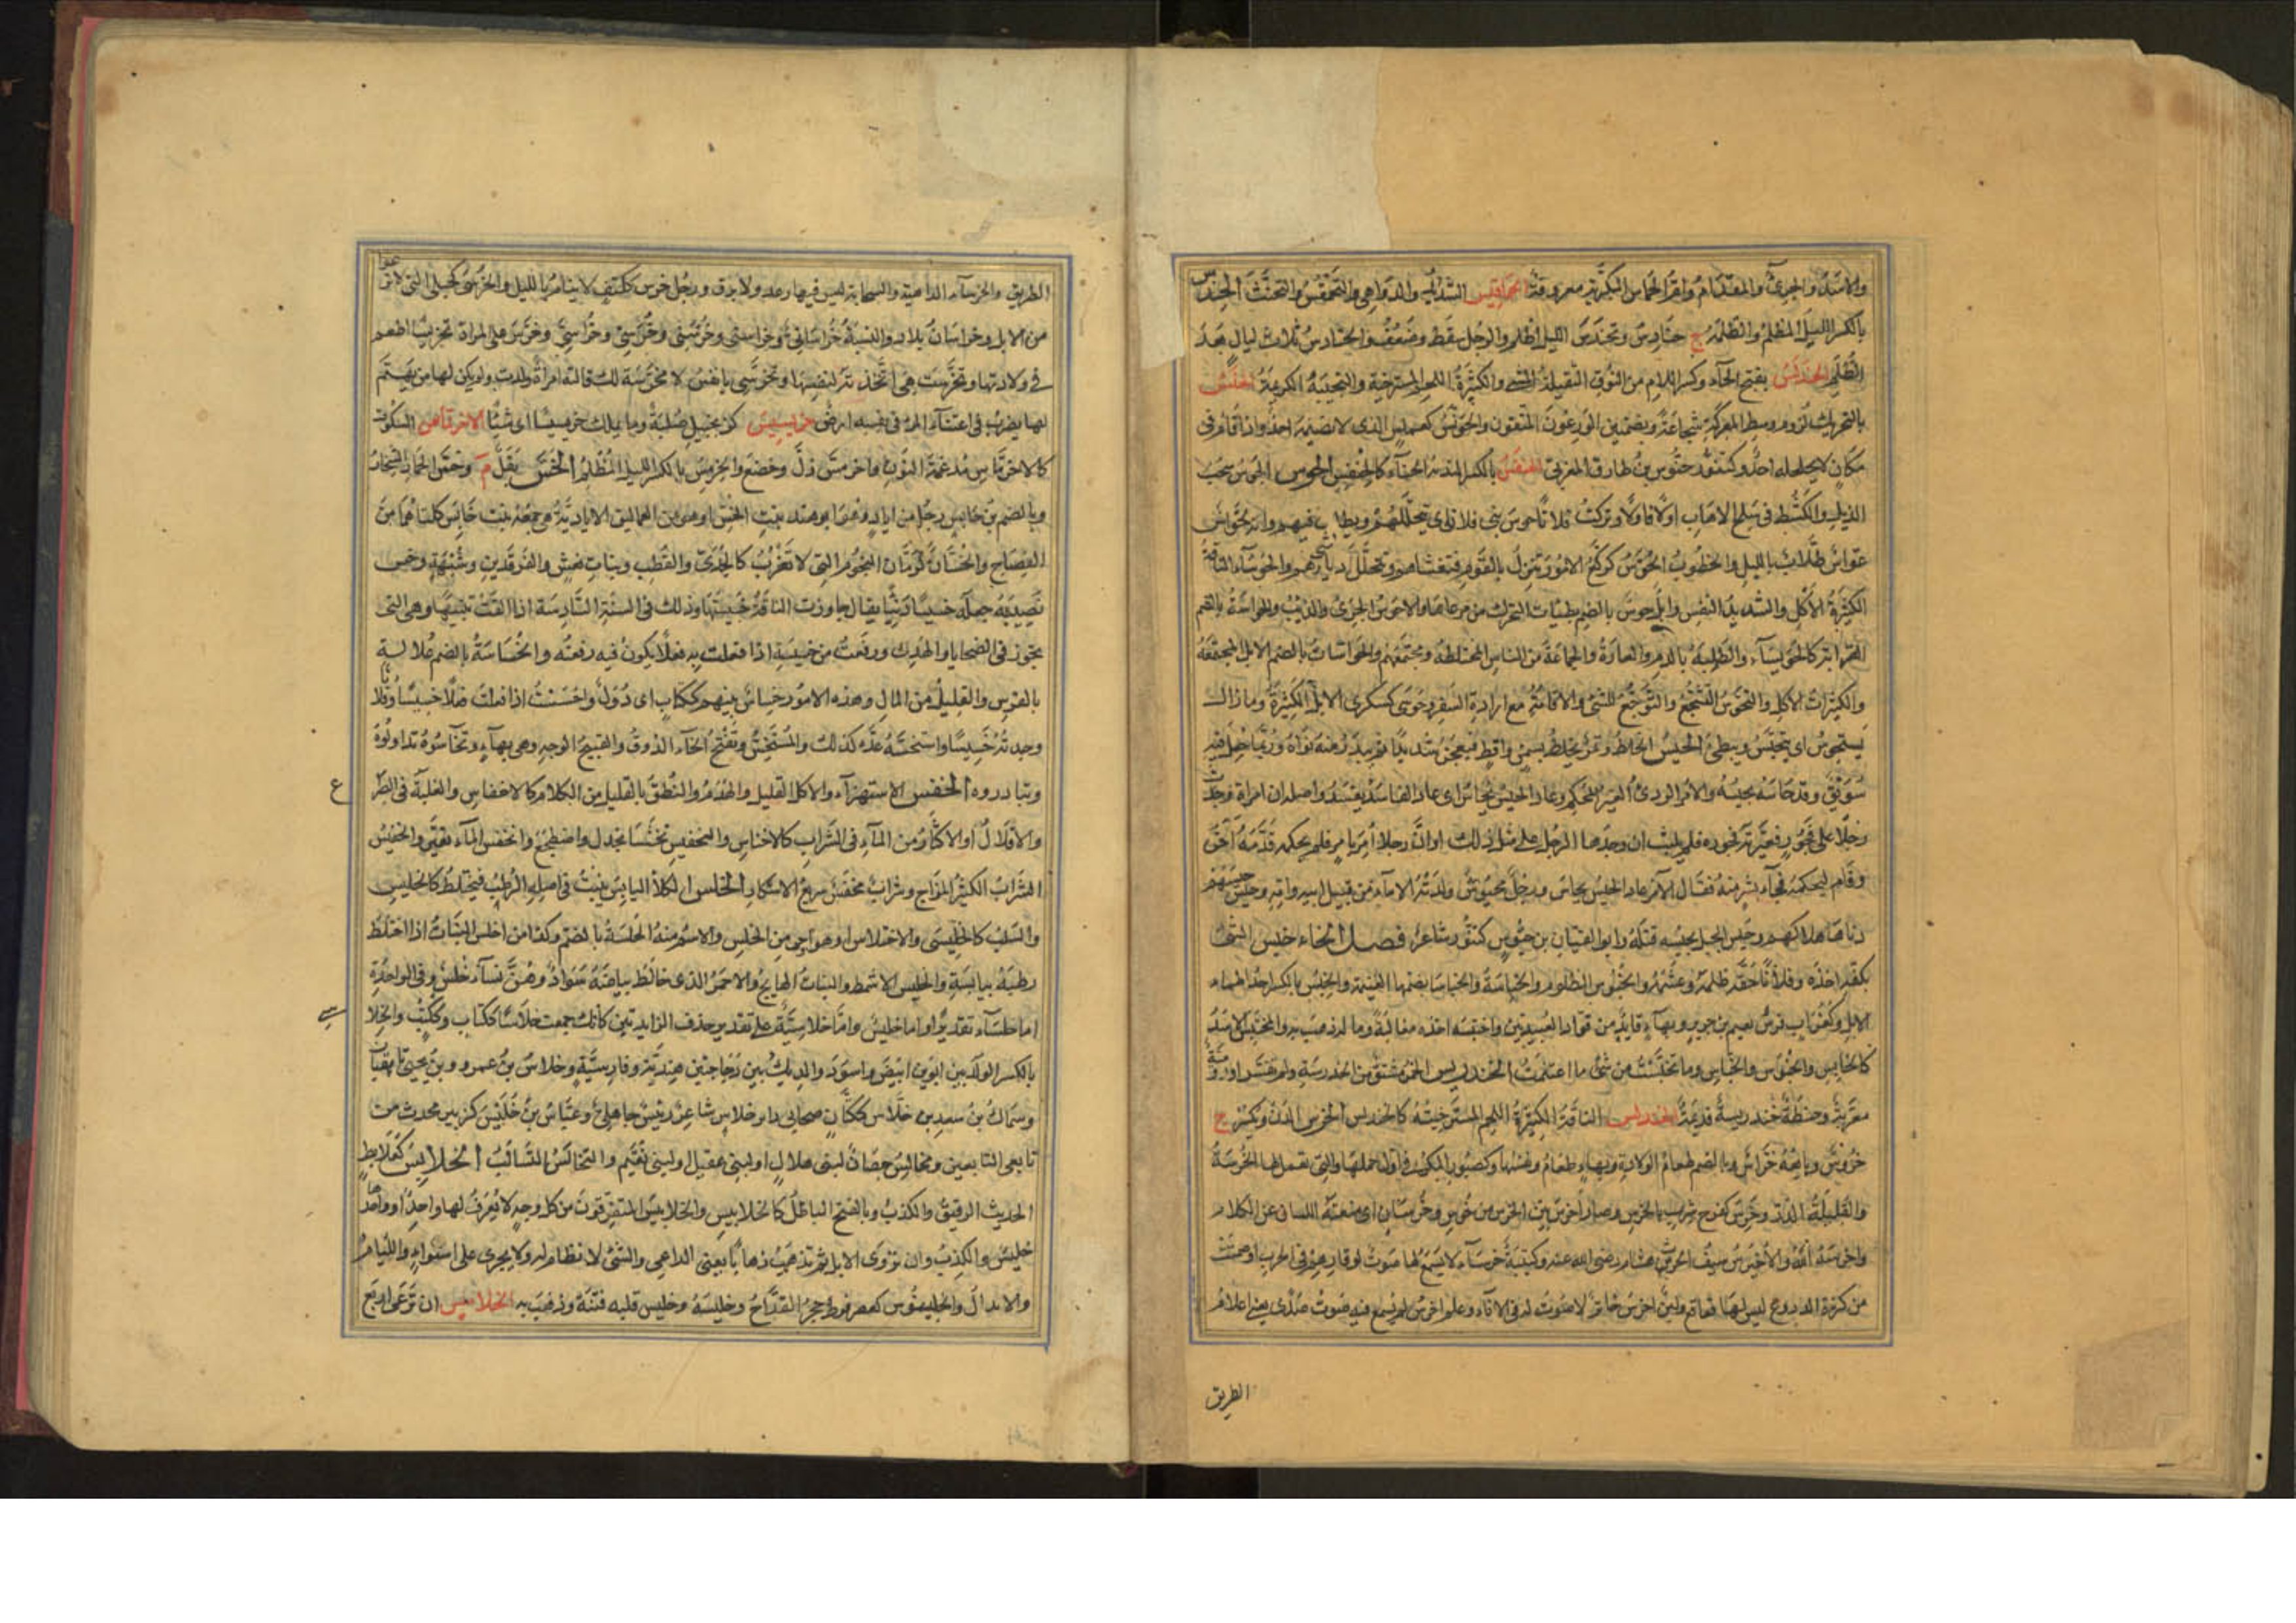 والاسَدُ والجرئُ والمقدَامُ وامّ الحمارس البَكريّة معروفةٌ الحَمَاقيس الشدائدُ والدّواهى والتَّحَمْقُسُ التخبُّثُ الحِندِس
بالكسر الليلُ المظلمُ والظُّلمَةُ ج حَنادِسُ وتحَندَسَ الليلُ اظلم والرجلُ سقَط وضَعُف والحنادِسُ ثلاث ليالٍ بعدَ
الظُّلَم الحَندَلِسُ بفتح الحاء وكسر اللام من النُّوق الثقيلةُ المشى والكثيرةُ اللحم المسترخية والنجيبَةُ الكريمَةُ الحَنَسُ
بالتحريك لزوم وسط المعركة شجاعَةً وبضمّتين الوَرِعُونَ المتّقون والحَوَنَّسُ كعملّس الذى لا يضيمه احدٌ واذا قام فى
مكانٍ لا يحلحله احدٌ وكتنّور حنّوس بن طارق المغربى الحنفسُ بالكسر البذيّةُ الحياء كالحِفنِسِ الحوس الجَوسُ سَحبُ
الذيل والكَشطُ فى سَلخ الاهَابِ اوّلا فاوّلا وتركتُ فلانًا يحوسُ بنى فلان اى يتخلّلهم ويطلب فيهم وانه لحوّاسٌ
عوّاسٌ طلّابٌ بالليل والخطوبُ الحُوَّسُ كركّع الامورُ تنزلُ بالقوم فتغشاهم وتتخلّلُ ديارهم والحَوساءُ الناقةُ
الكثيرةُ الأكل والشديدة النفس وابل حُوسٌ بالضم بطيئات التحرك من مرعاها والاحوسُ الجرئُ والذئبُ والحواسَةُ بالضم
القرابة كالحُوَيساء والطَّلِبةُ بالدم والغارةُ والجماعَةُ من الناس المختلطةُ ومجتمعُهم والحواساتُ بالضم الابل المجتمعَةُ
والكثيراتُ الاكل والتحوّسُ التشجّعُ والتوجّعُ للشئ والاقامةُ مع ارادة السفر وحَوسَى كسكرى الابلُ الكثيرةُ وما زال
يَستحوسُ اى يتحبّسُ ويبطئُ الحَيسُ الخَلطُ وتمرٌ يخلَطُ بسَمنٍ واقطٍ فيعجَنُ شديدًا ثم يندرُ منه نَواهُ وربّما جُعل فيه
سَويقٌ وقد حاسَهُ يحيسُهُ والامرُ الردئُ الغير المحكم وعاد الحيسُ يُحاسُ اى عاد الفاسدُ يفسَدُ واصله ان امراة وجدَت
رجُلًا على فجورٍ فعيّرته فجوره فلم يلبث ان وجدَها الرجُل على مثل ذلك او انّ رجلا اُمِرَ بامرٍ فلم يحكمه فذمّهُ آخَرُ
وقام ليحكمَهُ فجاء بشرٍّ منهُ فقال الآمر عاد الحيسُ يحاسُ ورجلٌ محيوسٌ ولدَتهُ الاماءُ من قِبَل ابيه وامّه وحِيسَ حَيسُهُم
دنا هلاكهم وحَيَسَ الحبلَ يحيسه فتلَهُ وابو الفتيان بن حيّوس كتنّور شاعرٌ فصل الخاء خبس الشئَ
بكفّه اخذه وفلانًا حَقَّه ظلمَهُ وغَشَمَهُ والخَبُوس الظلوم والخُباسَةُ والخُباساءُ بضمّهما الغنيمةُ والخِبسُ بالكسر احدُ اظماء
الابل وكغُرابٍ فرسُ فُقيم بن جرير وبهاءٍ قائدٌ من قوّاد العُبيديّين واختبَسَه اخذه مغالبَةً وماله ذهبَ به والمختبسُ الاسَدُ
كالخابِس والخَبُوس والخبّاس وما تخبّستُ من شئ ما اغتنَمتُ الخندريس الخَمرُ مشتقٌ من الخدرسَةِ ولم تفسّر او روميّةٌ
معرّبةٌ وحنطةٌ خَندريسةٌ قديمةٌ الخندلس الناقةُ الكثيرَةُ اللحم المسترخيَتُهُ كالحندلس الخرس الدَنُّ ويكسرُ ج
خروسٌ وبايعُهُ خرّاسٌ وبالضم طعامُ الولادةِ وبهاءٍ طعامُ نفسِها وكصبور البكرُ فى اوّل حملها والتى تعمل لها الخُرسَةُ
والقليلةُ الدّرِّ وخَرِسَ كفرح شرِبَ بالخَرس وصار اخرسَ بيّن الخَرَس من خُرسٍ وخُرسانٍ اى منعقد اللسان عن الكلام
واخرسَه اللّهُ والاُخيرِسُ سيفُ الحرث بن هشام رضى الله عنه وكتيبَةٌ خرساءُ لا يُسمَعُ لها صَوتٌ لوقارهم فى الحرب او صمتَت
من كثرة الدروع ليس لها قعاقعُ ولبنٌ اخرَسُ خاثرٌ لا صَوتَ له فى الاناء وعلم اخرسُ لم يُسمع فيه صَوتُ صَدًى يعنى اعلامُ
الطريق
الطريق والخرساء الداهيَة والسحابة ليس فيها رعد ولا برق ورجُل خرس ككتف لا ينام بالليل والخُرسَى كحُبلى التى لا ترغوا
من الابل وخراسانُ بلاد والنسبةُ خُراسانىٌّ وخراسنىٌ وخُرَسَنىٌّ وخُرسِىٌّ وخُراسِىٌّ وخَرّسَ على المراة تخريسًا اطعم
فى ولادتها وتخرّسَت هى اتّخذته لنفسِها وتخرّسِى يا نفسُ لا مخرِّسَةَ لكِ قالته امراةٌ ولدت ولم يكن لها من يهتمُّ
لها يضرَبُ فى اعتناءِ المرء فى نفسه ارضٌ خربسيسٌ كزنجبيل صُلبَةٌ وما يملك خربسيسًا اى شيئًا الاخرنماس السكوتُ
كالاخرِمّاسِ مُدغَمَةَ النّونِ واخرمَّسَ ذلَّ وخضَعَ والخِرمِسُ بالكسر الليلُ المُظلِمُ الخَسُّ بقلٌ م وخسُّ الحمارِ الشِّنجارُ
وبالضم بن حابس رجلٌ من ايادٍ وهو ابو هند بنت الخُسِّ او هى من العماليق الاياديّةُ وهى جمعة بنت حابس كلتاهما من
الفِصاح والخسّانُ كرُمّان النجوم التى لا تَغرُبُ كالجُدَىّ والقُطبِ وبنات نعشٍ والفَرقدين وشبهه وخسّ
نصيبَهُ جعله خسيسًا دنيئًا يقال جاوزت الناقةُ خَسيستَها وذلك فى السنة السّادسة اذا القَت ثنيّتها وهى التى
يجوز فى الضحايا والهَدىِ ورفَعتُ من خسيسَتِه اذا فعلت به فعلًا يكونُ فيه رفعتُه والخُساسَةُ بالضم عُلالة
بالفرس والقليلُ من المال وهذه الامور خِساسٌ بينهم ككتابٍ اى دُوَلٌ واخسَستُ اذا فعلت فعلًا خسيسًا وفلانًا
وجدتُه خَسيسًا واستخسّهُ عدّه كذلك والمُستَخِسُّ وتُفتَحُ الخاءُ الدّونُ والقبيحُ الوجه وهى بهاءٍ وتَخاسّوهُ تداولُوهُ
وتبادروه الخفس الاستهزاءُ والاكلُ القليل والهَدمُ والنُّطقُ بالقليل من الكلام كالاخفاس والغلبَةُ فى الصّرع
والاقلالُ او الاكثارُ من الماءِ فى الشَّراب كالاخفاس والتخفيس وتخفّسَ انجدل واضطجعَ وانخفسَ الماءُ تغيّر والخَفيسُ
الشرابُ الكثيرُ المزاج وشرابٌ مخفسٌ سريعُ الاسكار الخلس الكلأ اليابسُ ينبتُ فى اصله الرُّطبُ فيختلطُ كالخليس
والسّلبُ كالخِلّيسَى والاختلاس او هو اوحى من الخلس والاسم منه الخُلسَةُ بالضم وكذا من اخلس النباتُ اذا اختلطَ
رطبُهُ بيابسه والخليس الاشمط والنباتُ الهايجُ والاحمرُ الذى خالطَ بياضَهُ سَوادٌ وهُنّ نساءٌ خُلسٌ وفى الواحدة
اما خلساءُ تقديرًا واما خليسٌ واما خلاسيّةٌ على تقدير حذف الزايدتين كانك جمعت خلاسًا ككتاب وكُتُبٍ والخلاسى
بالكسر الولد بين ابوين ابيضَ واسوَدَ والديكُ بين دَجاجتين هنديّةٍ وفارسيّةٍ وخلاسُ بن عمرو وبن يحيى تابعيان
وسماكُ بنُ سعد بن خلّاس ككتّانٍ صحابى وابو خلاسٍ شاعرٌ رئيسٌ جاهلىٌّ وعبّاس بنُ خُلَيسٍ كزبير محدث من
تابعى التابعين ومخالسٌ حصانٌ لبنى هلالٍ او لبنى عقيلٍ او لبنى فُقَيم والتخالُسُ التسالُبُ الخلابِسُ كعُلابِط
الحديثُ الرقيقُ والكذبُ وبالفتح الباطلُ كالخلابيس والخلابيسُ المتفرّقون من كل وجهٍ لا يُعرَفُ لها واحدٌ او واحدها
خلبيسٌ والكذبُ وان تروَى الابل ثم تذهبَ ذهابًا يعيى الراعى والشئُ لا نظام له ولا يجرى على استواءٍ واللئامُ
والانذالُ والخَلَنبوس كعضرفوط حجرُ القدّاحِ وخلبسَهُ وخلبس قلبه فتنَهُ وذهبَ به الخلاميس ان ترعَى اربعَ